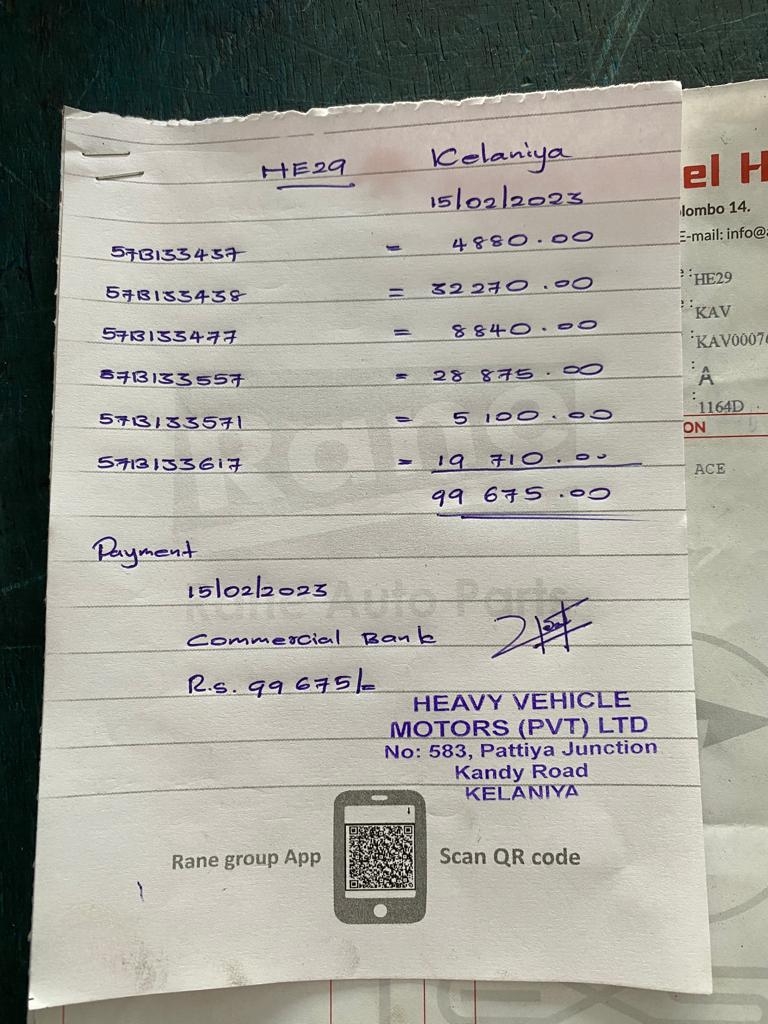 HE29 Kelaniya
15/02/2023
57B133437 = 4880.00
57B133438 = 32270.00
57B133477 = 8840.00
57B133557 = 28 875.00
57B133571 = 5 100.00
57B133617 = 19 710.00
99 675.00
Payment
15/02/2023
Commercial Bank
R.s. 99 675/=
HEAVY VEHICLE
MOTORS (PVT) LTD
No: 583, Pattiya Junction
Kandy Road
KELANIYA
Rane
Rane Auto Parts
Rane group App Scan QR code
el H
lombo 14.
E-mail: info@
: HE29
: KAV
: KAV0007
: A
: 1164D
ON
ACE